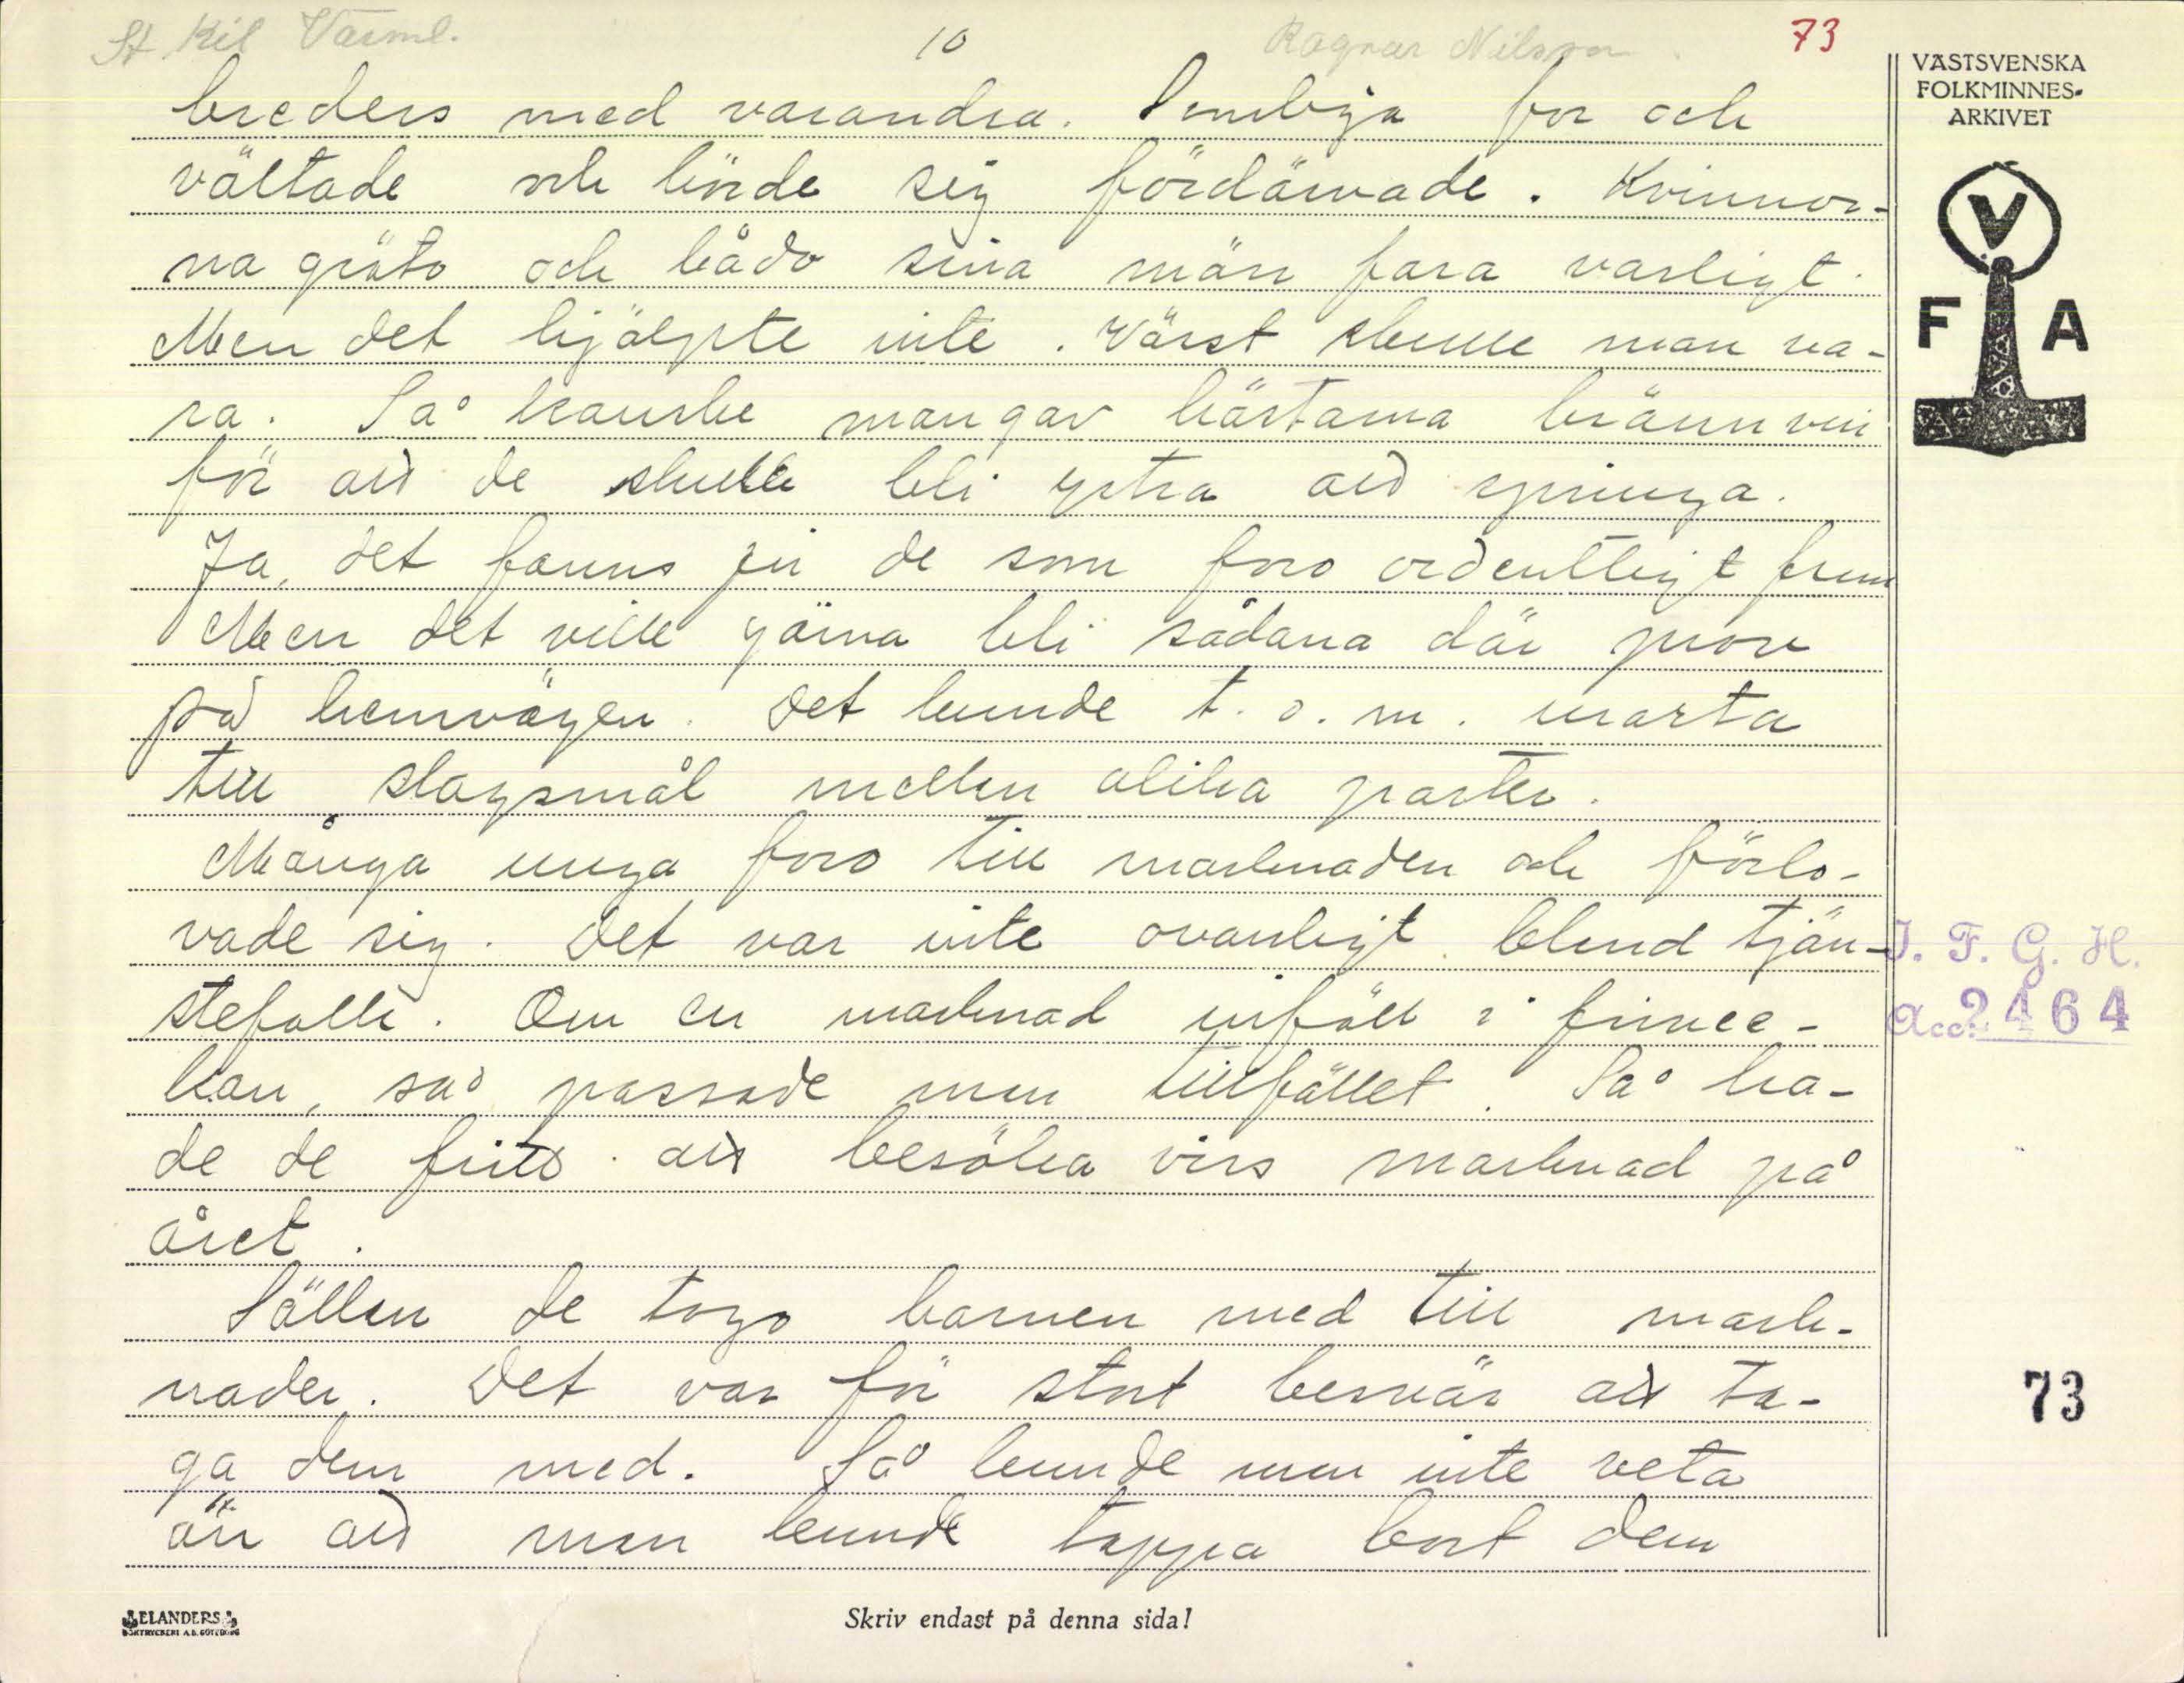 St Kil Värml. 10 Ragnar Nilsson. 73
VÄSTSVENSKA
FOLKMINNES-
ARKIVET
V
F A
breders med varandra. Somliga for och
vältade och körde sig fördärvade. Kvinnor-
na gräto och bådo sina män fara varligt.
Men det hjälpte inte. Värst skulle man va-
ra. Så kanske man gav hästarna brännvin
för att de skulle bli ystra att springa.
Ja, det fanns ju de som foro ordentligt fram
Men det ville gärna bli sådana där prov
på hemvägen. Det kunde t.o.m. urarta
till slagsmål mellan olika parter.
Många unga foro till marknaden och förlo-
vade sig. Det var inte ovanligt bland tjän-
stefolk. Om en marknad inföll i frivec-
kan, så passade man tillfället. Så ha-
de de fritt att besöka viss marknad på
året.
Sällan de togo barnen med till mark-
nader. Det var för stort besvär att ta-
ga dem med. Så kunde man inte veta
än att man kunde tappa bort dem
I. F. G. H.
Acc. 2464
73
ELANDERS
BOKTRYCKERI A.B. GÖTEBORG
Skriv endast på denna sida!